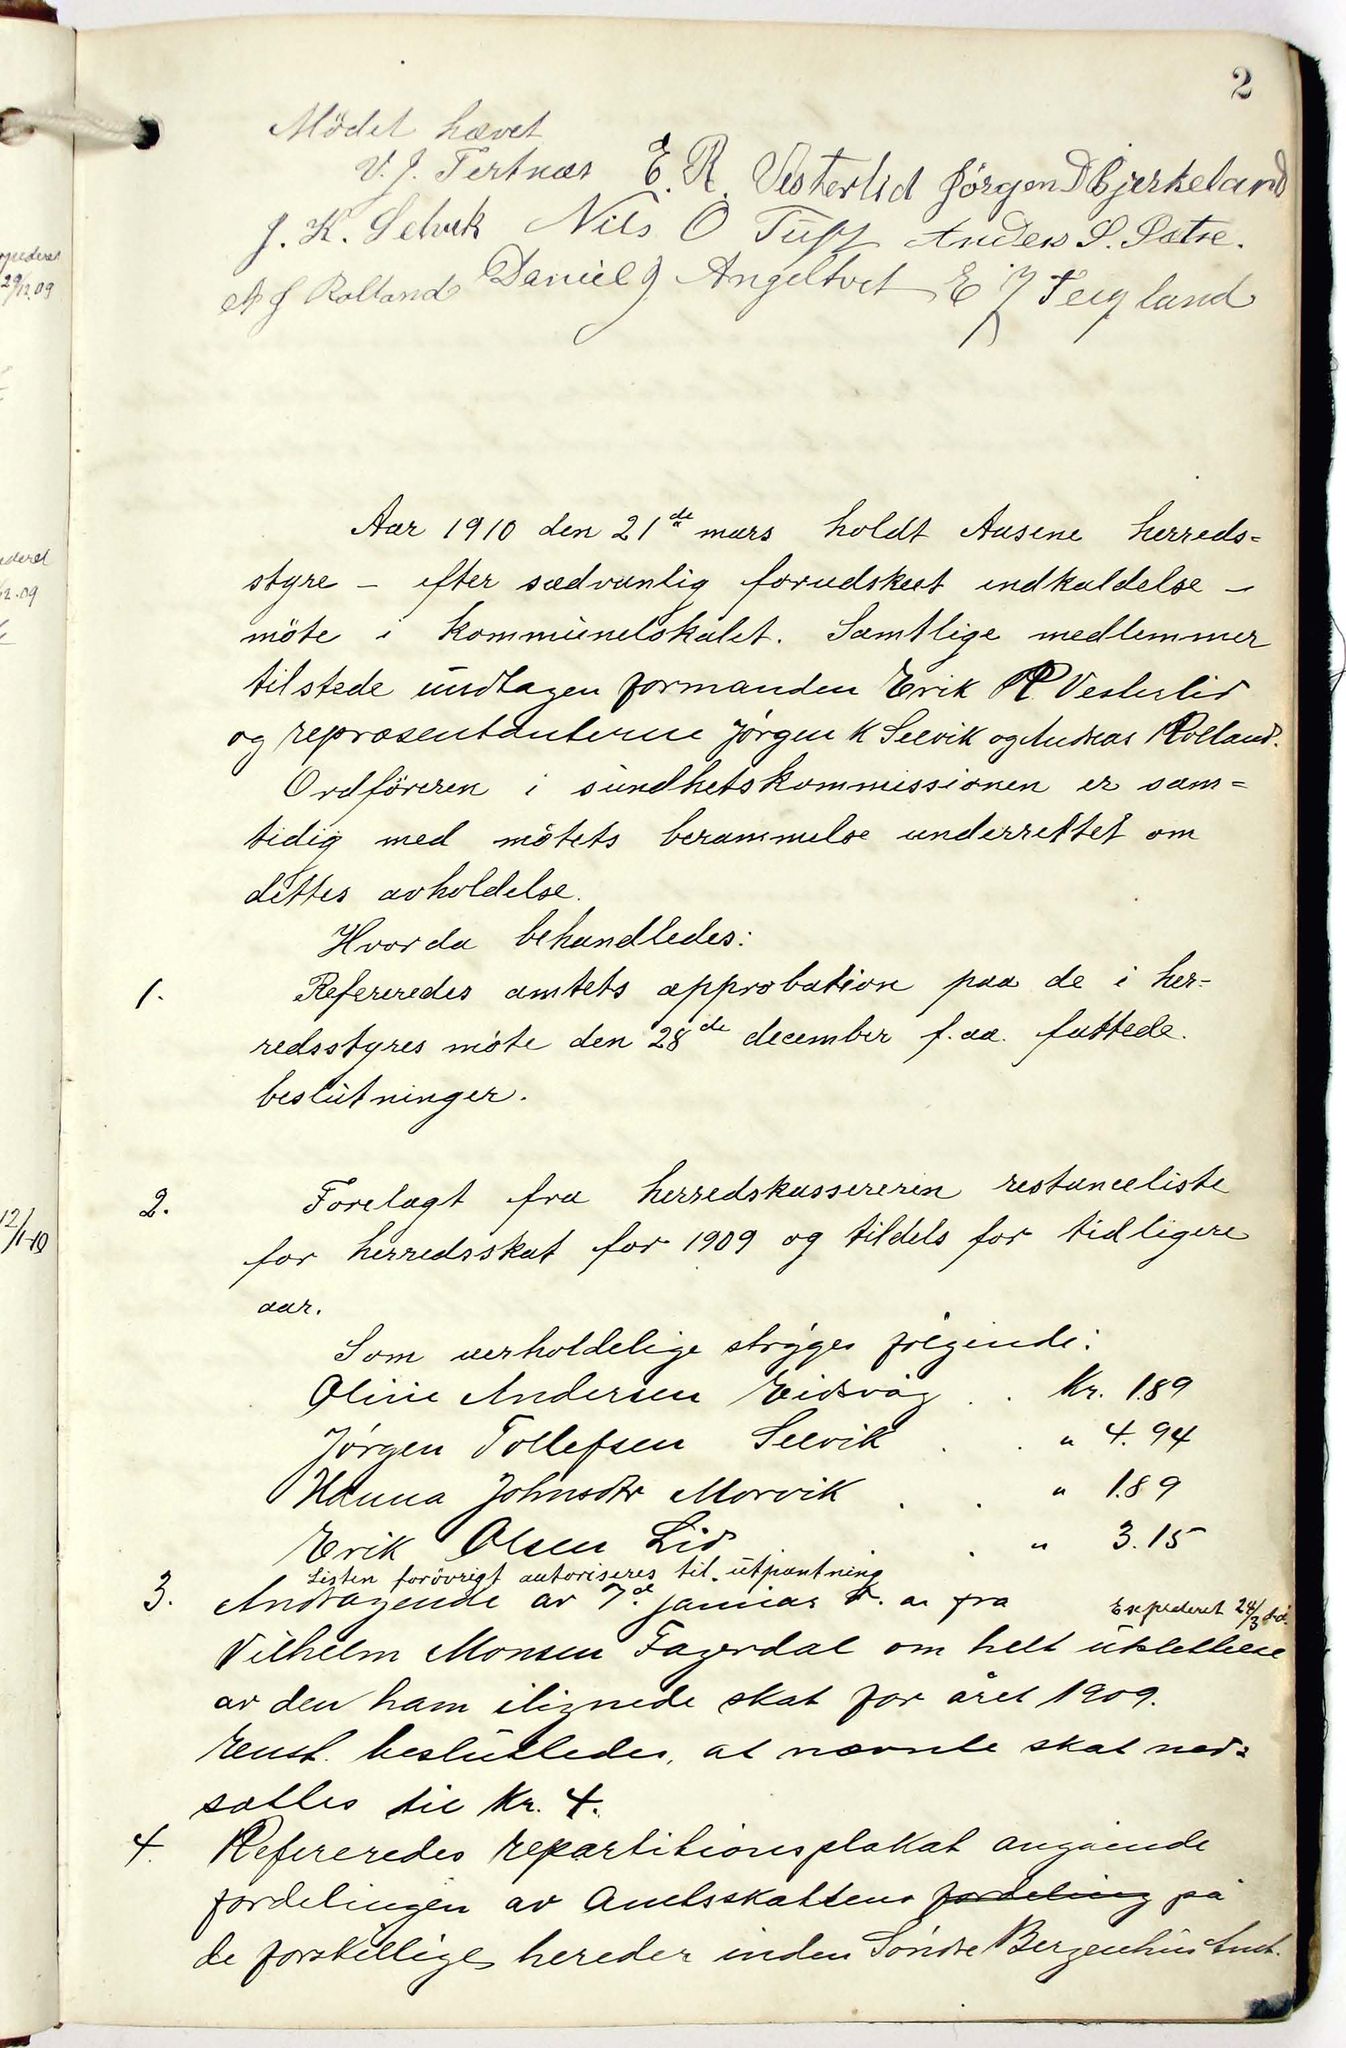 2
Mödet hævet
V. J. Tertnæs E. R. Vesterlid Jörgen D Bjerkeland
J. K. Selvik Nils O Tuft Anders S. Sætre.
A J Rolland Daniel J Angeltvet E J Teigland
29/12 09
12.09
12/1-10
Aar 1910 den 21de mars holdt Aasene herreds-
styre – efter sædvanlig forudskeet indkaldelse –
möte i kommunelokalet. Samtlige medlemmer
tilstede undtagen formanden Erik R Vesterlid
og repræsentanterne Jörgen K Selvik og Andreas Rolland.
Ordföreren i sundhetskommissionen er sam-
tidig med mötets berammelse underrettet om
dettes avholdelse.
Hvor da behandledes:
1. Refereredes amtets approbation paa de i her-
redsstyres möte den 28de december f. aa. fattede
beslutninger.
2. Forelagt fra herredskassereren restanceliste
for herredsskat for 1909 og tildels for tidligere
aar.
Som uerholdelige stryges fölgende:
Oline Andersen Eidsvåg . . Kr. 1.89
Jörgen Tollefsen Selvik . . " 4.94
Hanna Johnsdtr Morvik . . " 1.89
Erik Olsen Lid . . " 3.15
Listen forövrigt autoriseres til utpantning
Expederet 24/3
3. Andragende av 7de januar d. a. fra
Vilhelm Monsen Fagerdal om helt utslettelse
av den ham ilignede skat for året 1909.
Enst. besluttedes, at nævnte skat ned-
sættes til Kr. 4.
4. Refereredes repartitionsplakat angående
fordelingen av Amtsskattens fordeling på
de forskillige hereder inden Söndre Bergenhus Amt.